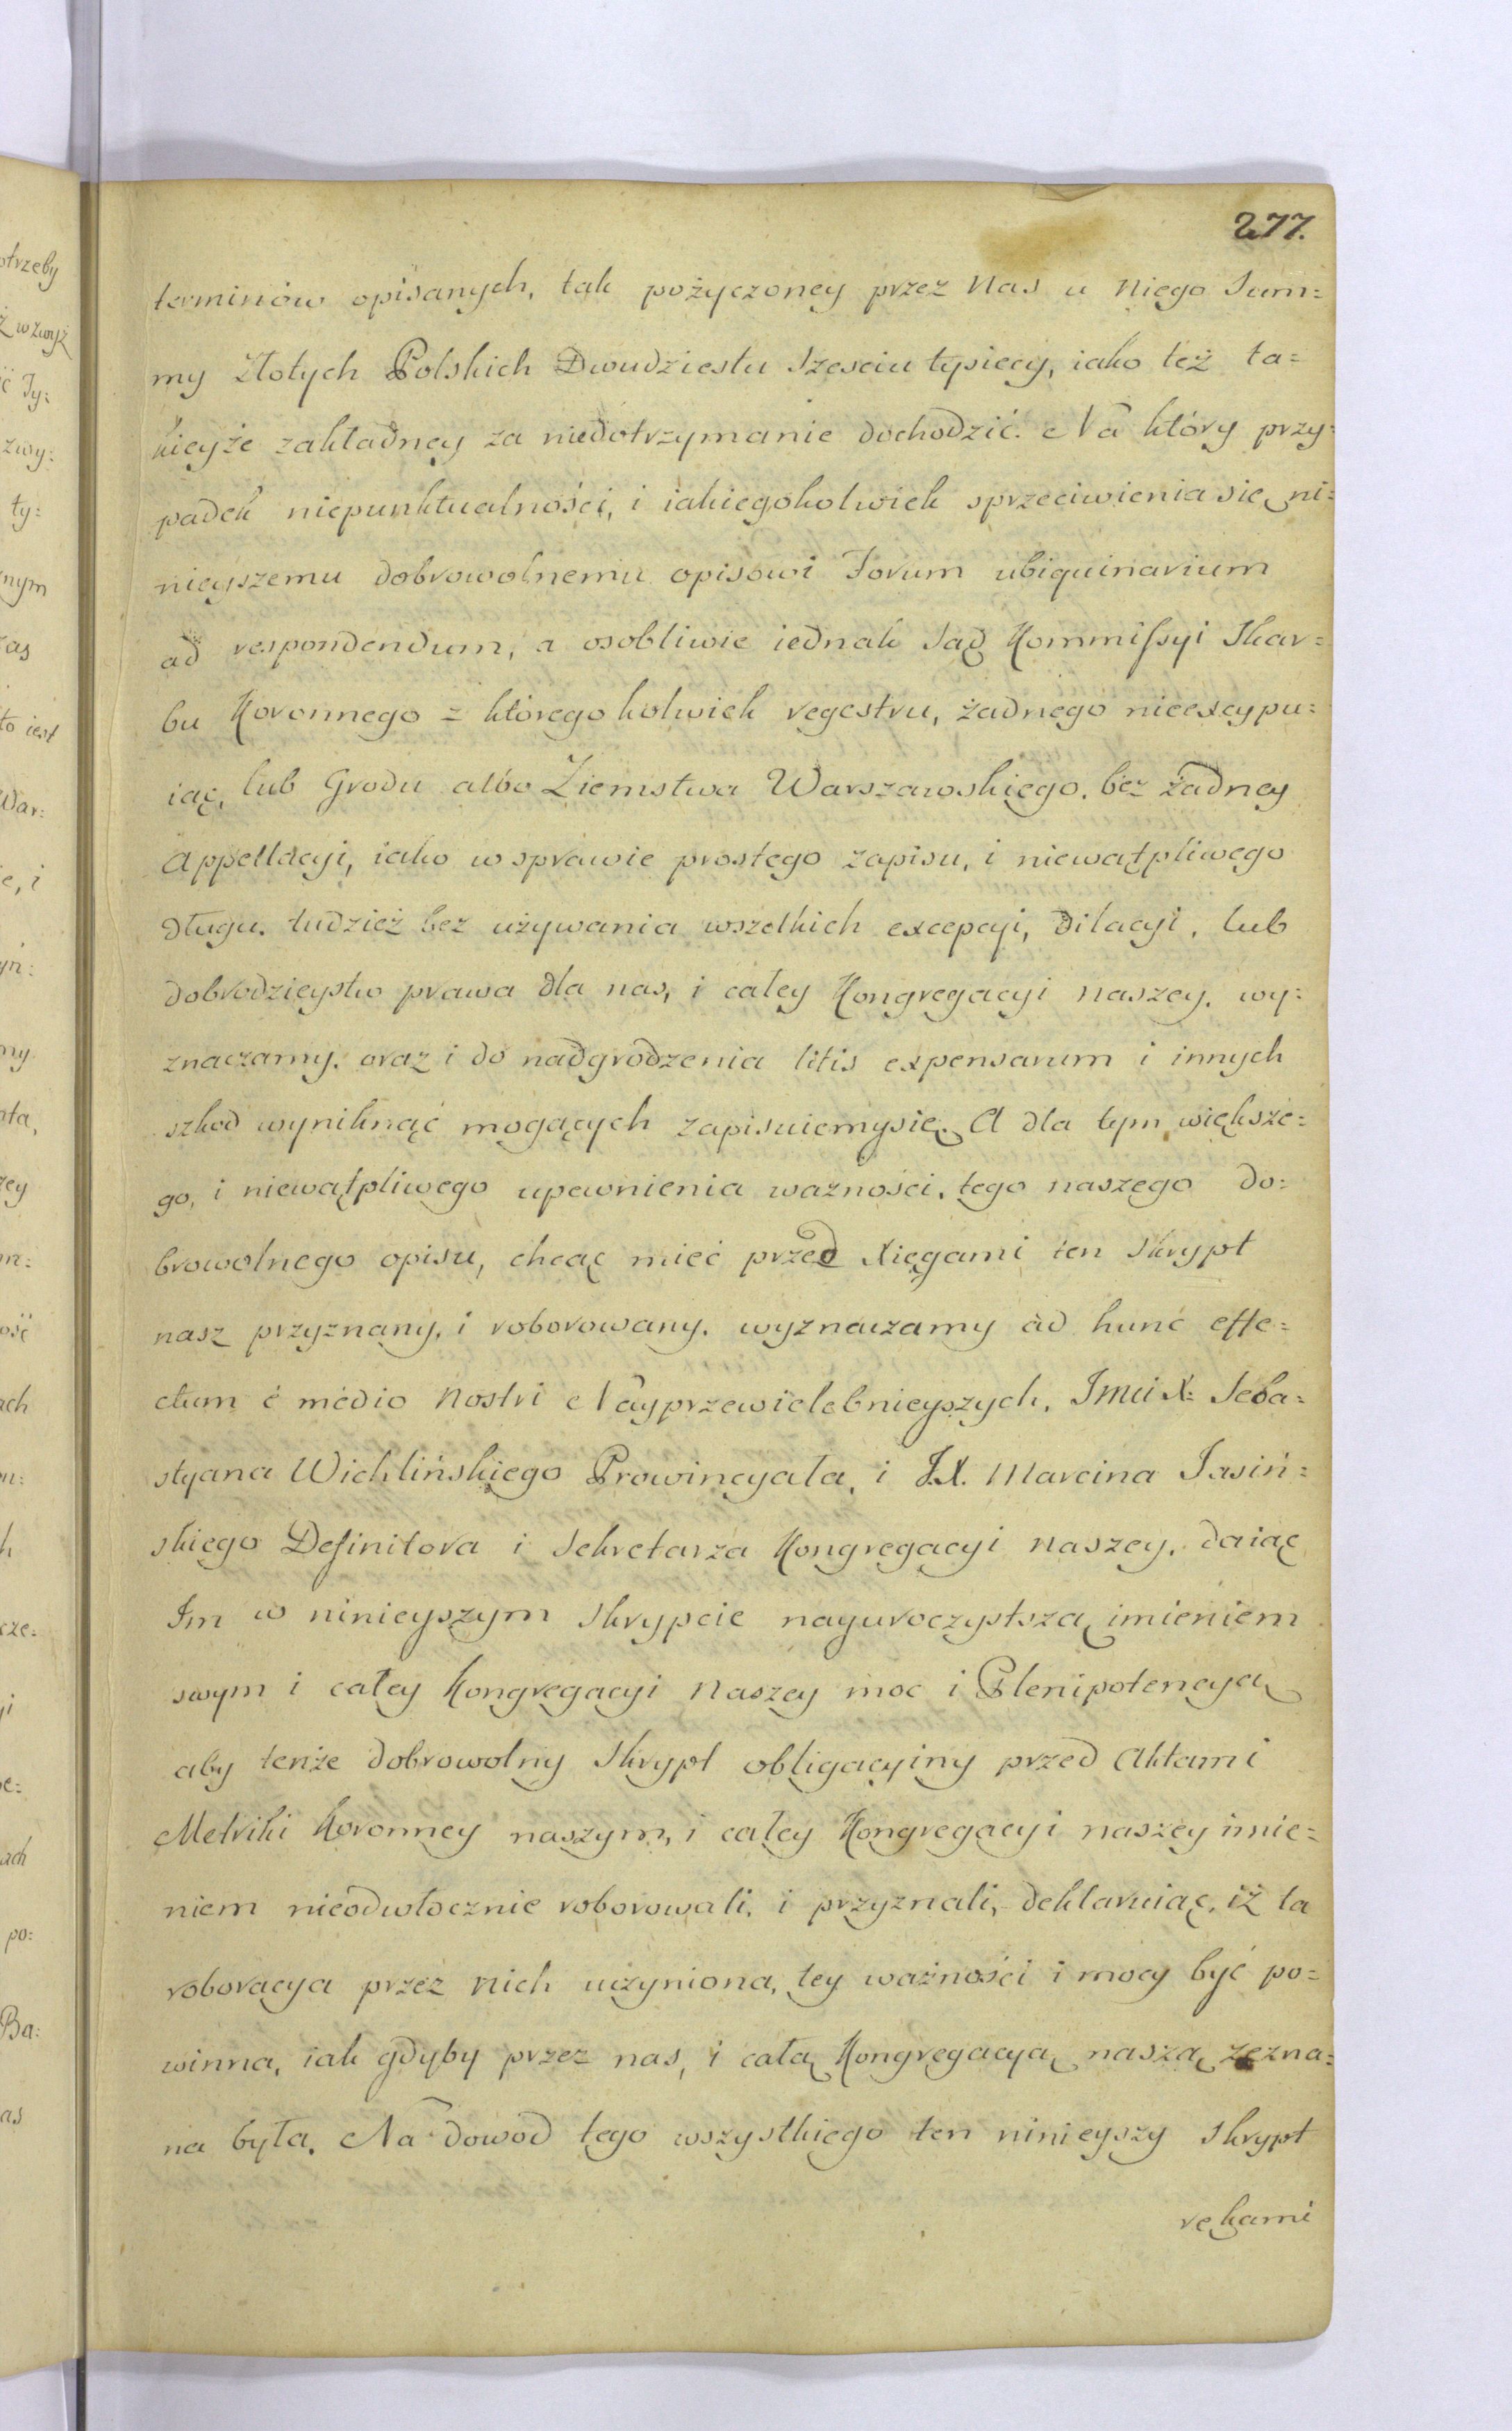 277.
terminów opisanych, tak pożyczoney przez Nas u Niego Sum=
my Złotych Polskich Dwudziestu Szesciu tysięcy, iako też ta=
kieyże zakładney za niedotrzymanie dochodzić. Na który przy=
padek niepunktualności, i iakiegokolwiek sprzeciwienia się ni=
nieyszemu dobrowolnemu opisowi Forum ubiquinarium
ad respondendum, a osobliwie iednak Sąd Kommissyi Skar=
bu Koronnego z którego kolwiek regestru, żadnego nieexcypu=
iąc, lub Grodu albo Ziemstwa Warszawskiego, bez żadney
Appellacyi, iako w sprawie prostego zapisu, i niewątpliwego
długu, tudzież bez używania wszelkich excepcyi, dilacyi, lub
dobrodzieystw prawa dla nas, i całey Kongregacyi naszey, wy=
znaczamy, oraz i do nadgrodzenia litis expensarum i innych
szkod wyniknąć mogących zapisuiemysię. A dla tym większe=
go, i niewątpliwego upewnienia ważności, tego naszego do=
browolnego opisu, chcąc mieć przed Xięgami ten Skrypt
nasz przyznany, i roborowany, wyznaczamy ad hunc effe=
ctum é medio Nostri Nayprzewielebnieyszych, Jmci X: Seba=
styana Wichlińskiego Prowincyała, i J.X. Marcina Jasiń=
skiego Definitora i Sekretarza Kongregacyi naszey, daiąc
Im w ninieyszym Skrypcie nayuroczystszą imieniem
swym i całey Kongregacyi Naszey moc i Plenipotencyą
aby tenże dobrowolny Skrypt obligacyiny przed Aktami
Metriki Koronney naszym, i całey Kongregacyi naszey imie=
niem nieodwłocznie roborowali, i przyznali, deklaruiąc, iż ta
roboracya przez Nich uczyniona, tey ważności i mocy być po=
winna, iak gdyby przez nas, i całą Kongregacyą naszą zezna=
na była. Na dowód tego wszystkiego ten ninieyszy Skrypt
rękami